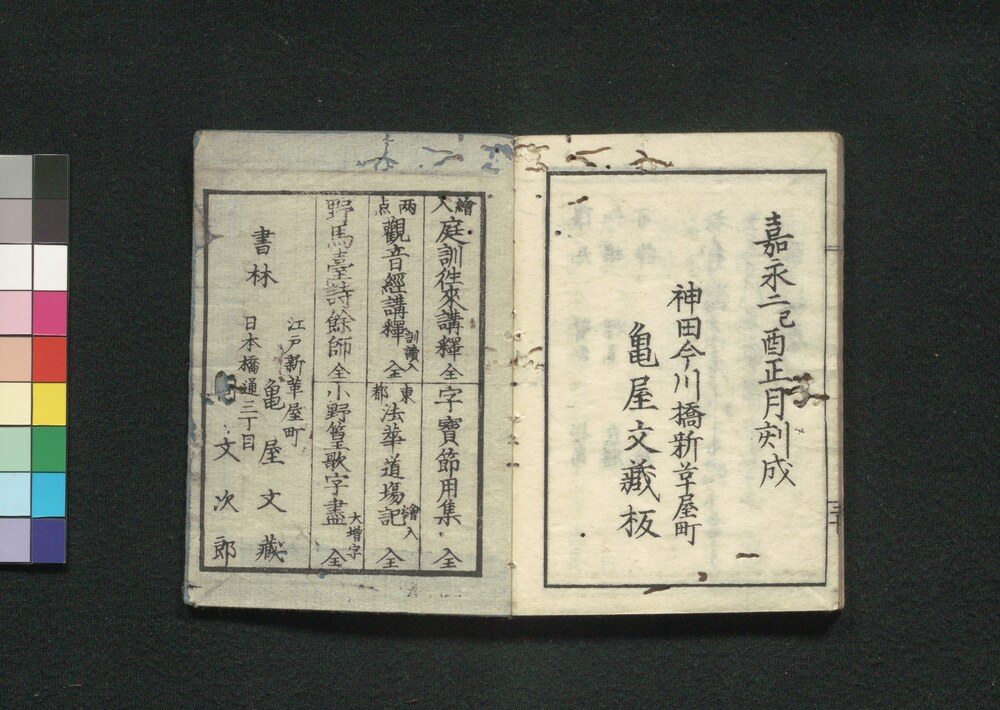 嘉永二己酉正月刻成
神田今川橋新革屋町
亀屋文藏板
繪入 庭訓徃來講釋 全
字寶節用集 全
両点 觀音經講釋 訓讀入 全
東都 法華道場記 繪入 全
野馬臺詩餘師 全
小野篁歌字盡 大増字 全
書林
江戸新革屋町
亀屋文藏
日本橋通三丁目
文次郎